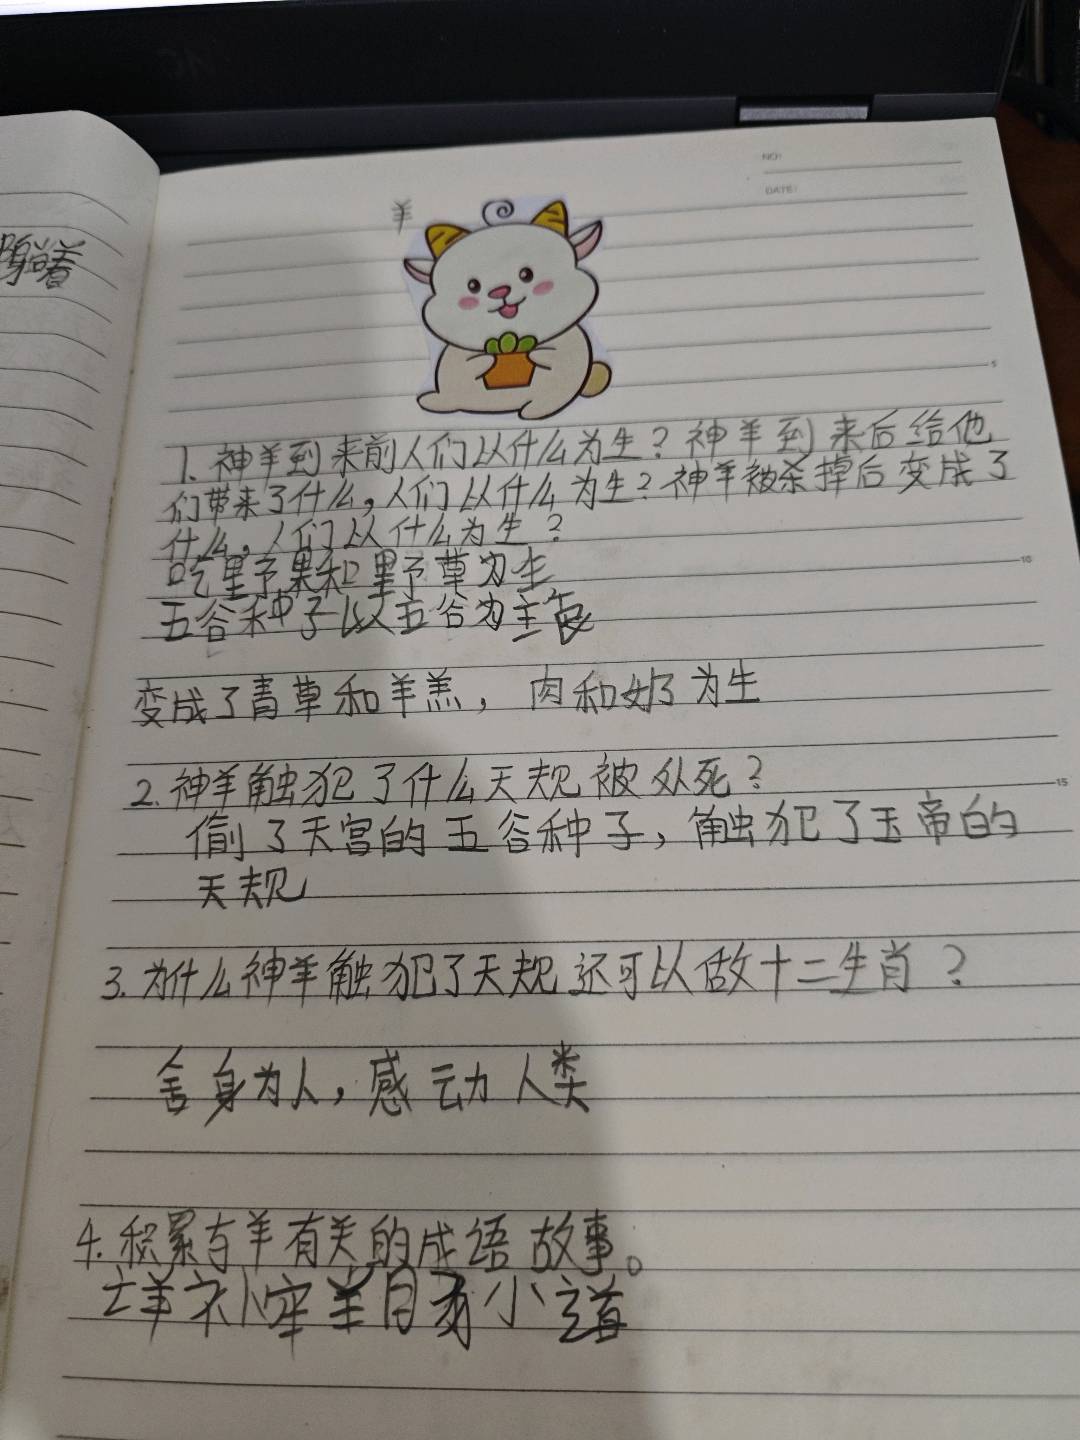 NO:
DATE:
羊
5
1. 神羊到来前人们以什么为生？神羊到来后给他
们带来了什么，人们以什么为生？神羊被杀掉后变成了
什么，人们以什么为生？
10
吃野果和野草为生
五谷种子以五谷为主食
变成了青草和羊羔，肉和奶为生
2. 神羊触犯了什么天规被处死？
15
偷了天宫的五谷种子，触犯了玉帝的
天规
3. 为什么神羊触犯了天规还可以做十二生肖？
舍身为人，感动人类
4. 积累与羊有关的成语故事。
羊补牢羊 小道
着